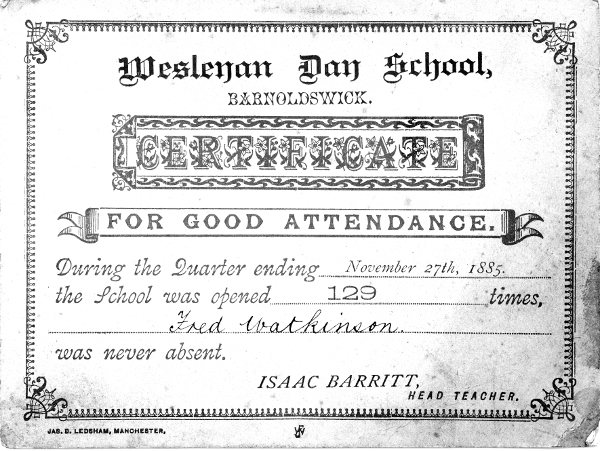 Wesleyan Day School,
BARNOLDSWICK.
CERTIFICATE
FOR GOOD ATTENDANCE.
During the Quarter ending November 27th, 1885.
the School was opened 129 times,
Fred Watkinson.
was never absent.
ISAAC BARRITT,
HEAD TEACHER.
JAS. D. LEDSHAM, MANCHESTER.